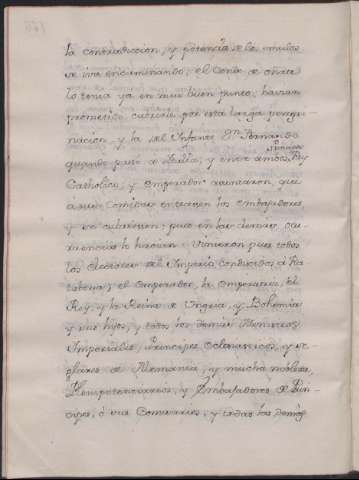 la contradiccion, y potencia de los emulos
se iva encaminando; el Conde de oñate
lo tenia ya en mui buen punto; havian
prometido cubrirle por esta larga peregri-
nacion, y la del Infante Dn. Fernando
quando pasó a Italia, y entre ambos
Principes, Rey
Catholico, y Emperador asentaron, que
à sus Comidas entrasen los embajadores
y se cubriesen; pues en las demas, ca-
remonias lo hicieron: Vinieron pues todos
los electores del Imperio conducidos, à Ra-
tisbona; el Emperador, la Emperatriz, el
Rey, y la Reina de Ungria, y Bohemia
y sus hijos, y todos los demas Ministros
Imperiales, Principes eclesiasticos, y se-
glares de Alemania, y mucha nobleza,
Plenipotenciarios, y Embajadores de Prin-
cipes, ó sus Comisarios; y todas las demas